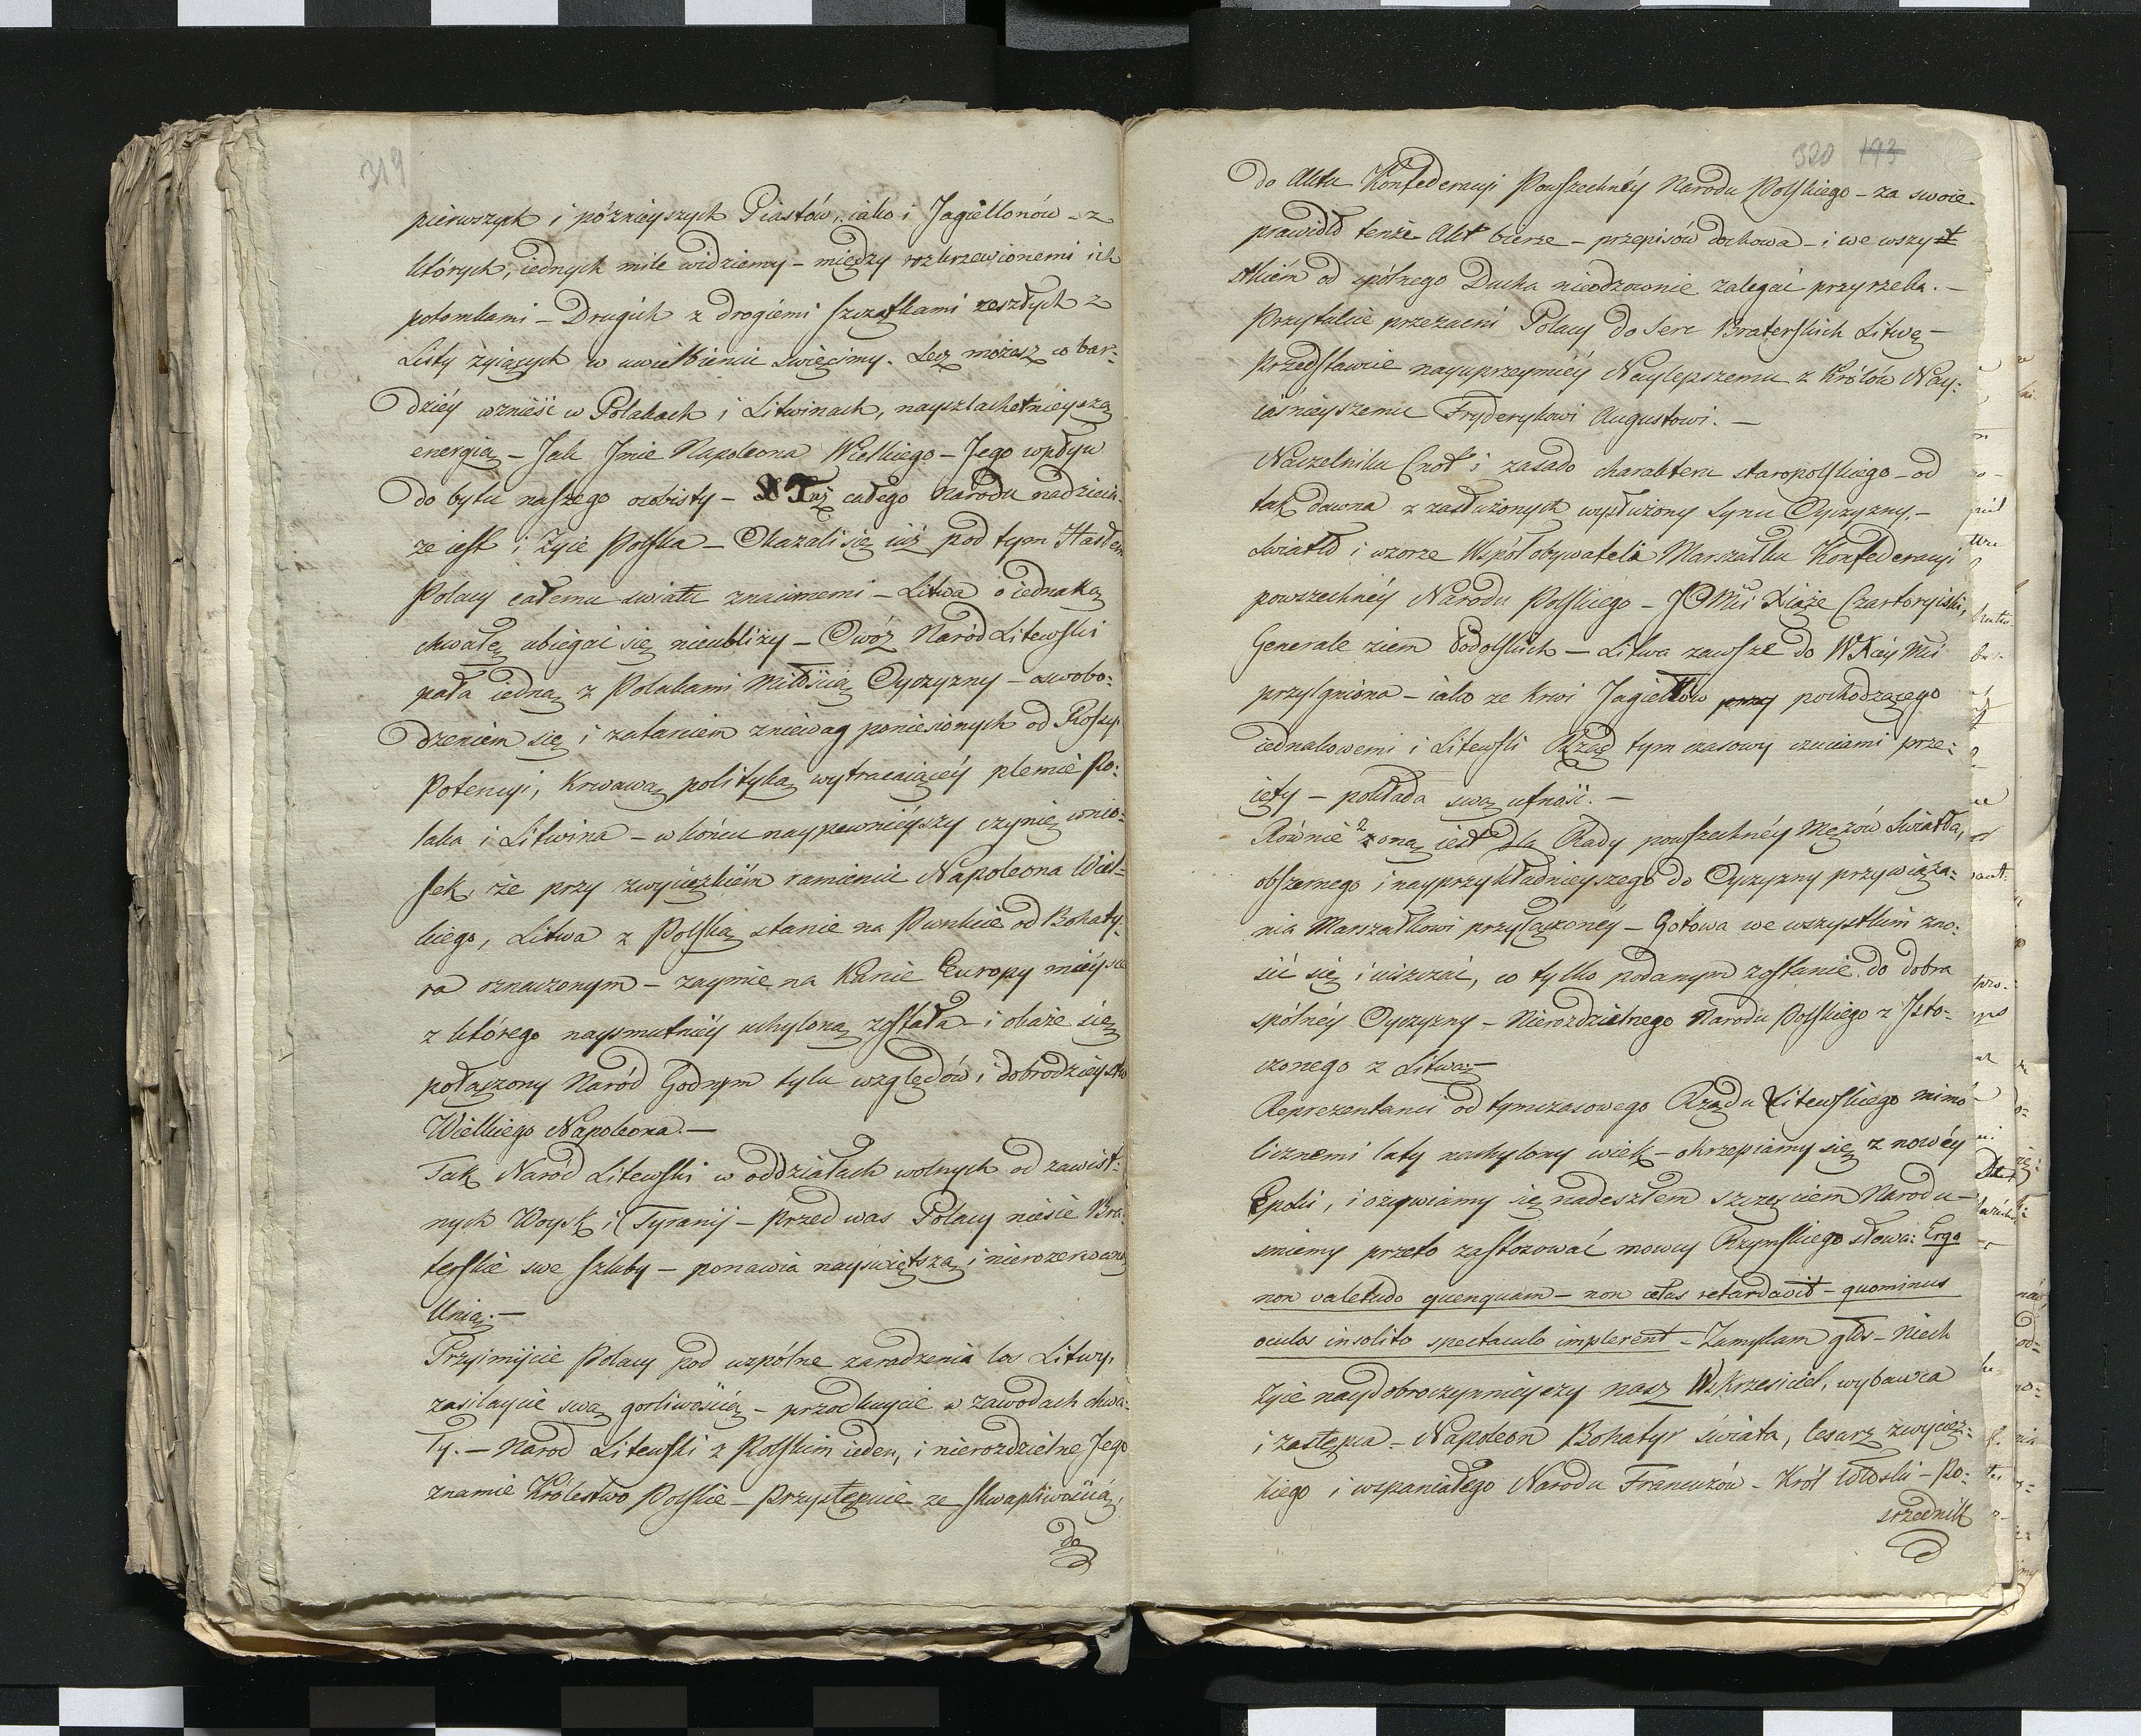 319
pierwszych i późnieyszych Piastów, iako i Jagiellonów – z
których, iednych mile widziemy – między rozkrzewionemi ich
potomkami – Drugich z drogiemi szczątkami zeszłych z
Listy żyiących w uwielbieniu święcimy. Lecz możesz co bar:
dziéy wznieść w Polakach i Litwinach, nayszlachetnieyszą
energią – Jak Jmie Napoleona Wielkiego – Jego wpływ
do bytu naszego osobisty – Tuż całego Narodu nadzieia
że iest i żyie Polska – Okazali się iuż pod tym Hasłem
Polacy całemu światu znaiomemi – Litwa o iednaką
chwałę ubiegać się nieubliży – Owóż Naród Litewski
pała iedną z Polakami Miłością Oyczyzny – oswobo:
dzeniem się i zatarciem zniewag poniesionych od Rossyi
Potencyi, krwawą polityką wytracaiącéy plemie Po:
laka i Litwina – w końcu naypewniéyszy czynię wnio:
sek, że przy zwycięzkiém ramieniu Napoleona Wiel:
kiego, Litwa z Polską stanie na Punkcie od Bohaty:
ra oznaczonym – zaymie na Karcie Europy miéysce
z którego naysmutniéy uchyloną została – i okaże się
połączony Naród Godnym tylu względów i dobrodzieystw
Wielkiego Napoleona. –
Tak Naród Litewski w oddziałach wolnych od zawist:
nych Woysk i Tyranij – przed was Polacy niesie Bra:
terskie swe szluby – ponawia nayświętszą i nierozerwaną
Unią. –
Przyimijcie Polacy pod wspólne zaradzenia los Litwy,
zasilaycie swą gorliwością – przodkuycie w zawodach chwa:
ły. – Naród Litewski z Polskim ieden, i nierozdzielne Jego
znamie Królestwo Polskie – Przystępuie ze skwapliwością,
do
320 193
do Aktu Konfederacyi Powszechnéy Narodu Polskiego – za swoie
prawidło tenże Akt bierze – przepisów dochowa – i we wszyst
stkiém od spólnego Ducha nieodzownie zalegać przyrzeka. –
Przytulcie przezacni Polacy do Serc Braterskich Litwę –
Przedstawcie nayuprzeymiéy Naylepszemu z Królów Nay:
iaśnieyszemu Fryderykowi Augustowi. –
Naczelniku Cnot i zasado charakteru staropolskiego – od
tak dawna z zasłużonych wysłużony Synu Oyczyzny, –
Światło i wzorze Współobywatela Marszałku Konfederacyi
powszechnéy Narodu Polskiego – JO Mći Xiąże Czartoryiski,
Generale ziem Podolskich – Litwa zawsze do WXcéy Mći
przylgniona – iako ze krwi Jagiełłów pochodzącego
iednakowemi i Litewski Rząd tymczasowy czuciami prze:
ięty – pokłada swą ufność. –
Również oną iest dla Rady powszechnéy Mężów Światła,
obszernego i nayprzykładnieyszego do Oyczyzny przywiąza:
nia Marszałkowi przyłączonéy – Gotowa we wszystkim zno:
sić się i uiszczać, co tylko podanym zostanie do dobra
spólnéy Oyczyzny – Nierozdzielnego Narodu Polskiego z Isto:
czonego z Litwą –
Reprezentanci od tymczasowego Rządu Litewskiego mimo
licznemi laty nachylony wiek – okrzepiamy się z nowéy
Epoki, i ożywiamy się nadeszłem szczęściem Narodu –
smiemy przeto zastosować mowcy Rzymskiego słowa: Ergo
non valetudo quenquam – non ætas retardavit – quominus
oculos insolito spectaculo implerent – Zamykam głos – Niech
żyie naydobroczynnieyszy nasz Wskrzesiciel, wybawca
i zastępca – Napoleon Bohatyr świata, Cesarz zwycięz:
kiego i wspaniałego Narodu Francuzów – Król Włoski – Po:
srzednik